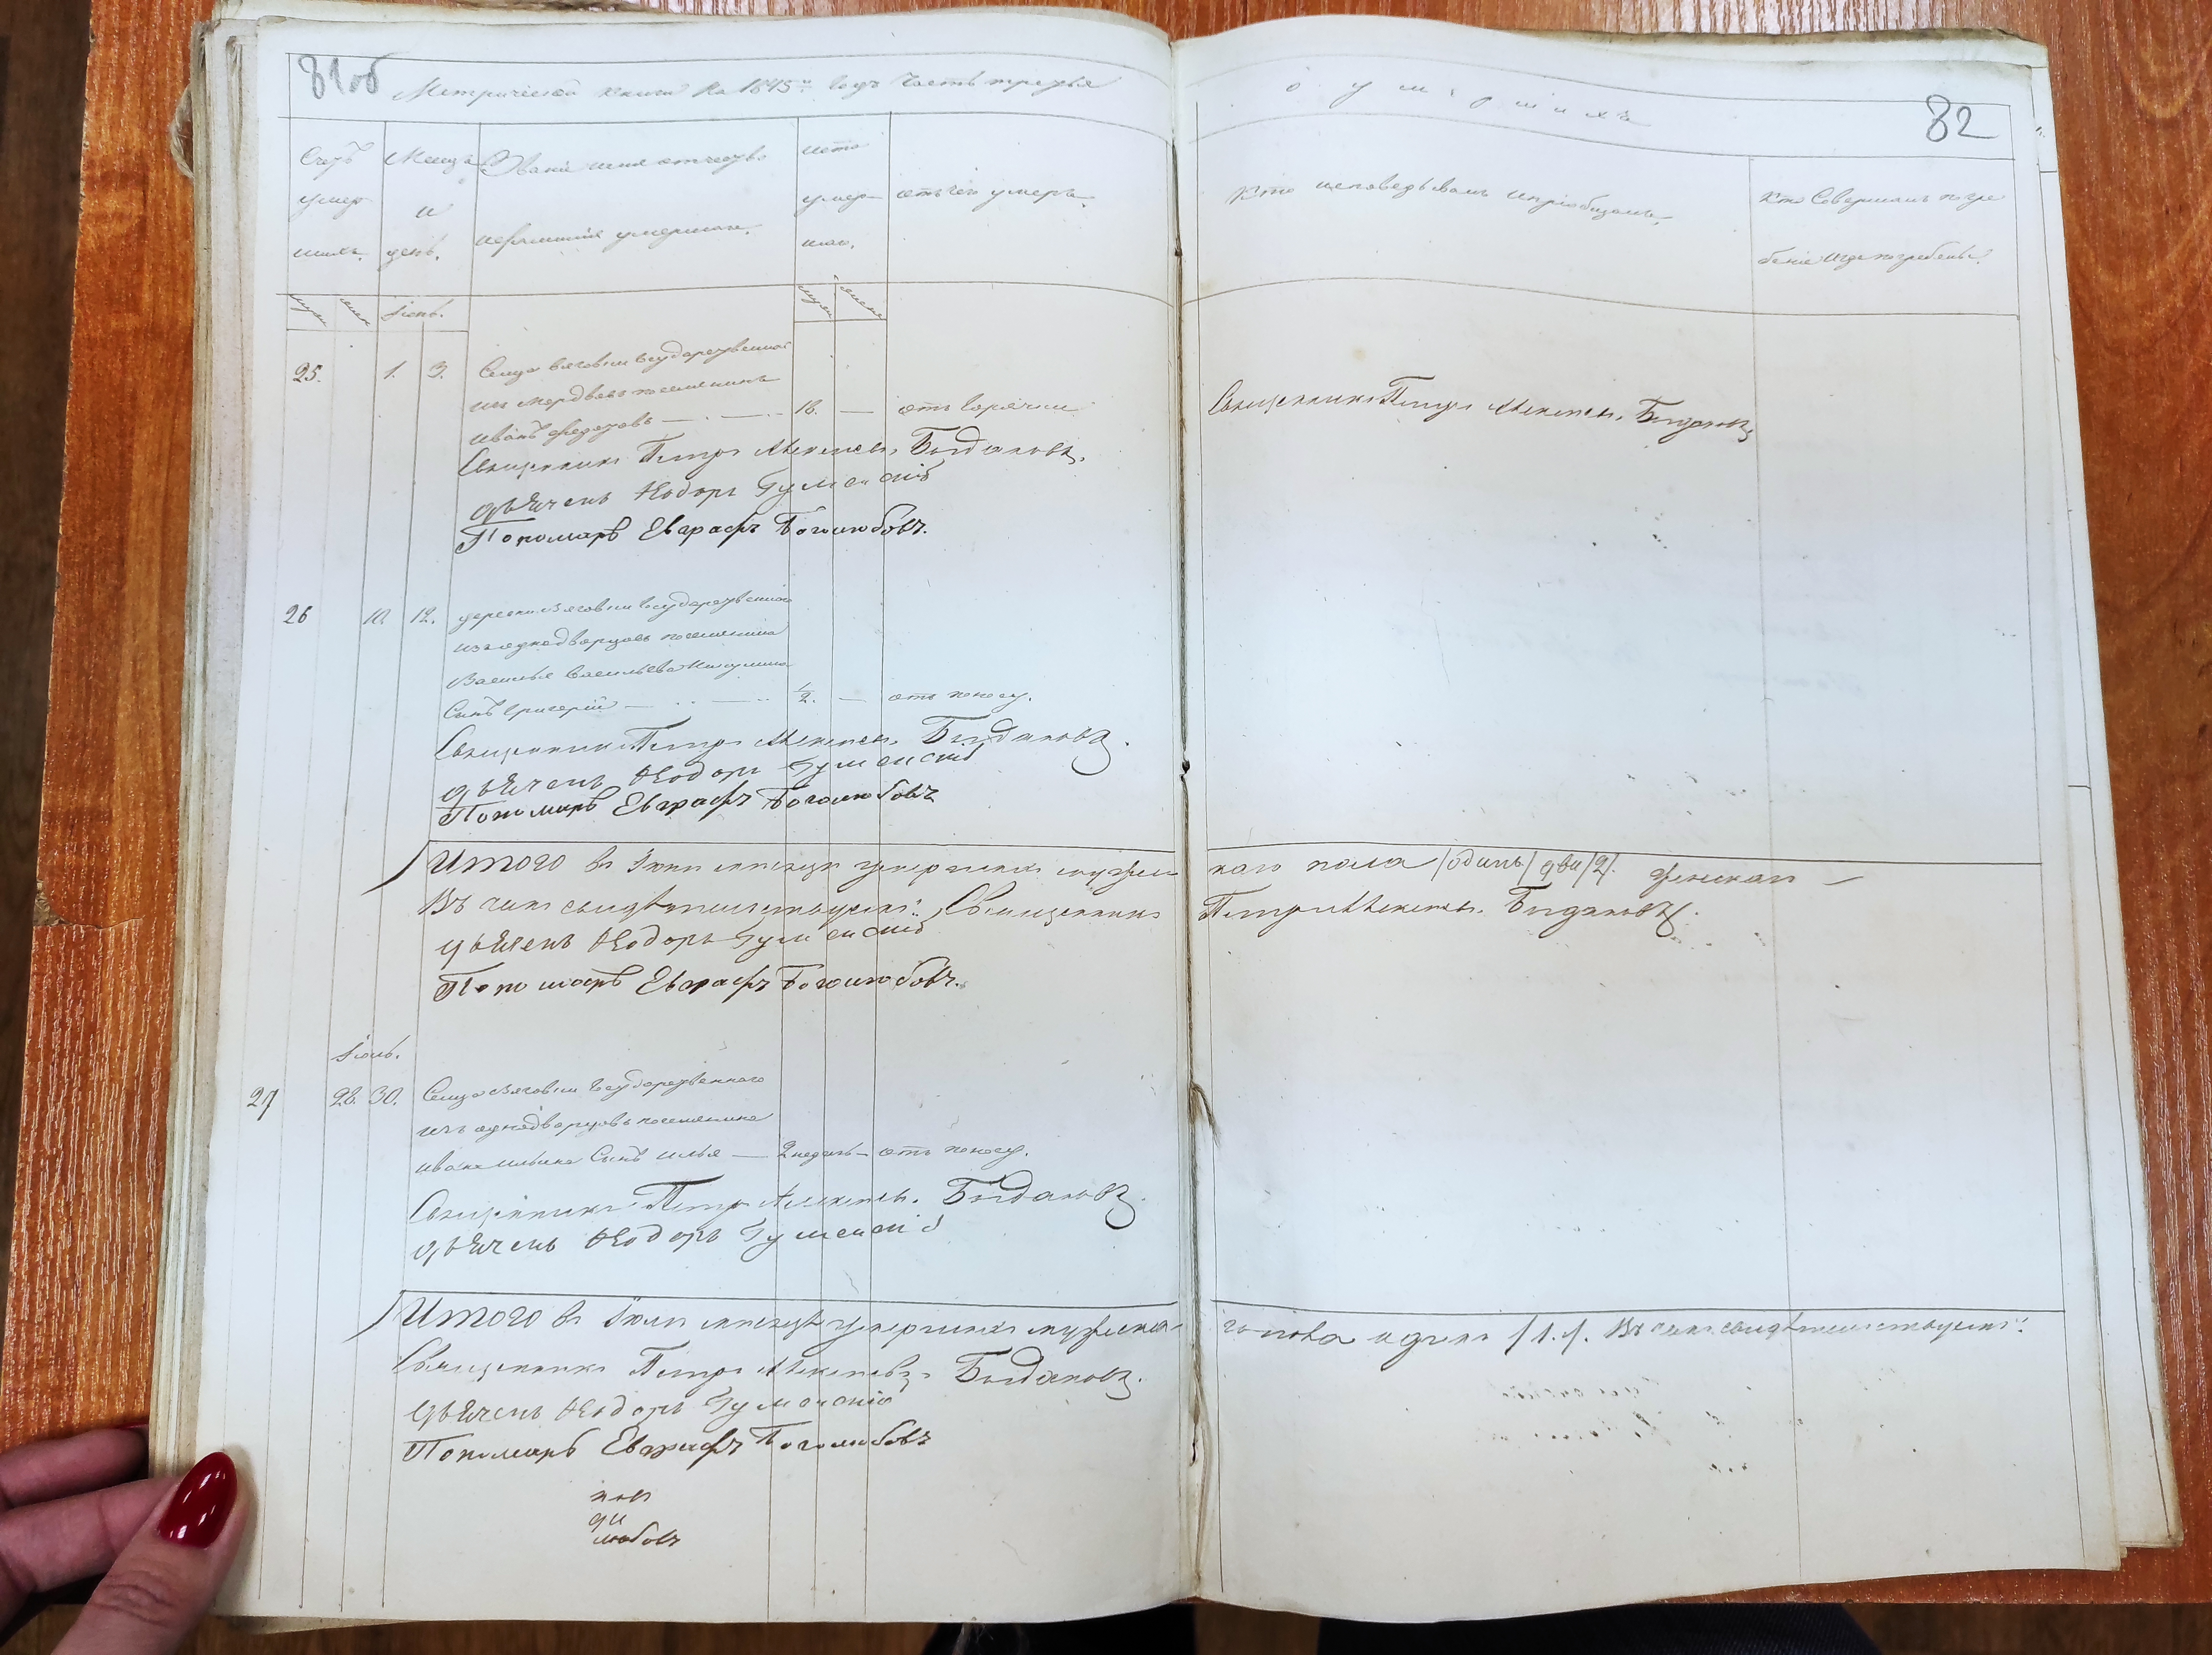 81об
Метрической книги на 1845й годъ часть третья
о умершихъ
82
Счетъ умер-шихъ.
Месяцъ и день.
Званіе имя отчество и фамилія умершаго.
лета умер-шаго.
отъ чего умеръ.
Кто исповедывалъ и пріобщалъ.
Кто Совершалъ погре
беніе и где погребены.
Іюнь.
25. 1. 3. Сельца Вяговки государственной
изъ мордвовъ поселянинъ
Иванъ Федотовъ — 18. — отъ горячки
Священникъ Петръ Алексеев. Богданов.
Священникъ Петръ Алексеев. Богдановъ.
дьячекъ Ѳеодоръ Гуменскій
Пономарь Евграфъ Боголюбовъ.
26 10. 12. деревни Вяговки государственного
изъ однодворцовъ поселянина
Василья Васильева
Сынъ Григорій — 1/2. — отъ поносу.
Священникъ Петръ Алексеев. Богдановъ.
дьячекъ Ѳеодоръ Гуменскій
Пономарь Евграфъ Боголюбовъ
Итого въ Іюне месяце умершихъ мужес каго пола /одинъ/ два /2/. женскаго —
Въ чемъ свидетельствуемъ: Священникъ Петръ Алексеев. Богдановъ.
дьячекъ Ѳеодоръ Гуменскій
Пономарь Евграфъ Боголюбовъ.
Іюль.
27 28. 30. Сельца Вяговки государственного
изъ однодворцовъ поселянина
Ивана Ильина Сынъ Илья — 2 недель — отъ поносу.
Священникъ Петръ Алексеев. Богдановъ.
дьячекъ Ѳеодоръ Гуменскій
Итого въ Іюле месяце умершихъ мужеска го пола одинъ /1./. Въ чемъ свидетельствуемъ:
Священникъ Петръ Алексеевъ Богдановъ.
дьячекъ Ѳеодоръ Гуменскій
Пономарь Евграфъ Боголюбовъ
любовъ